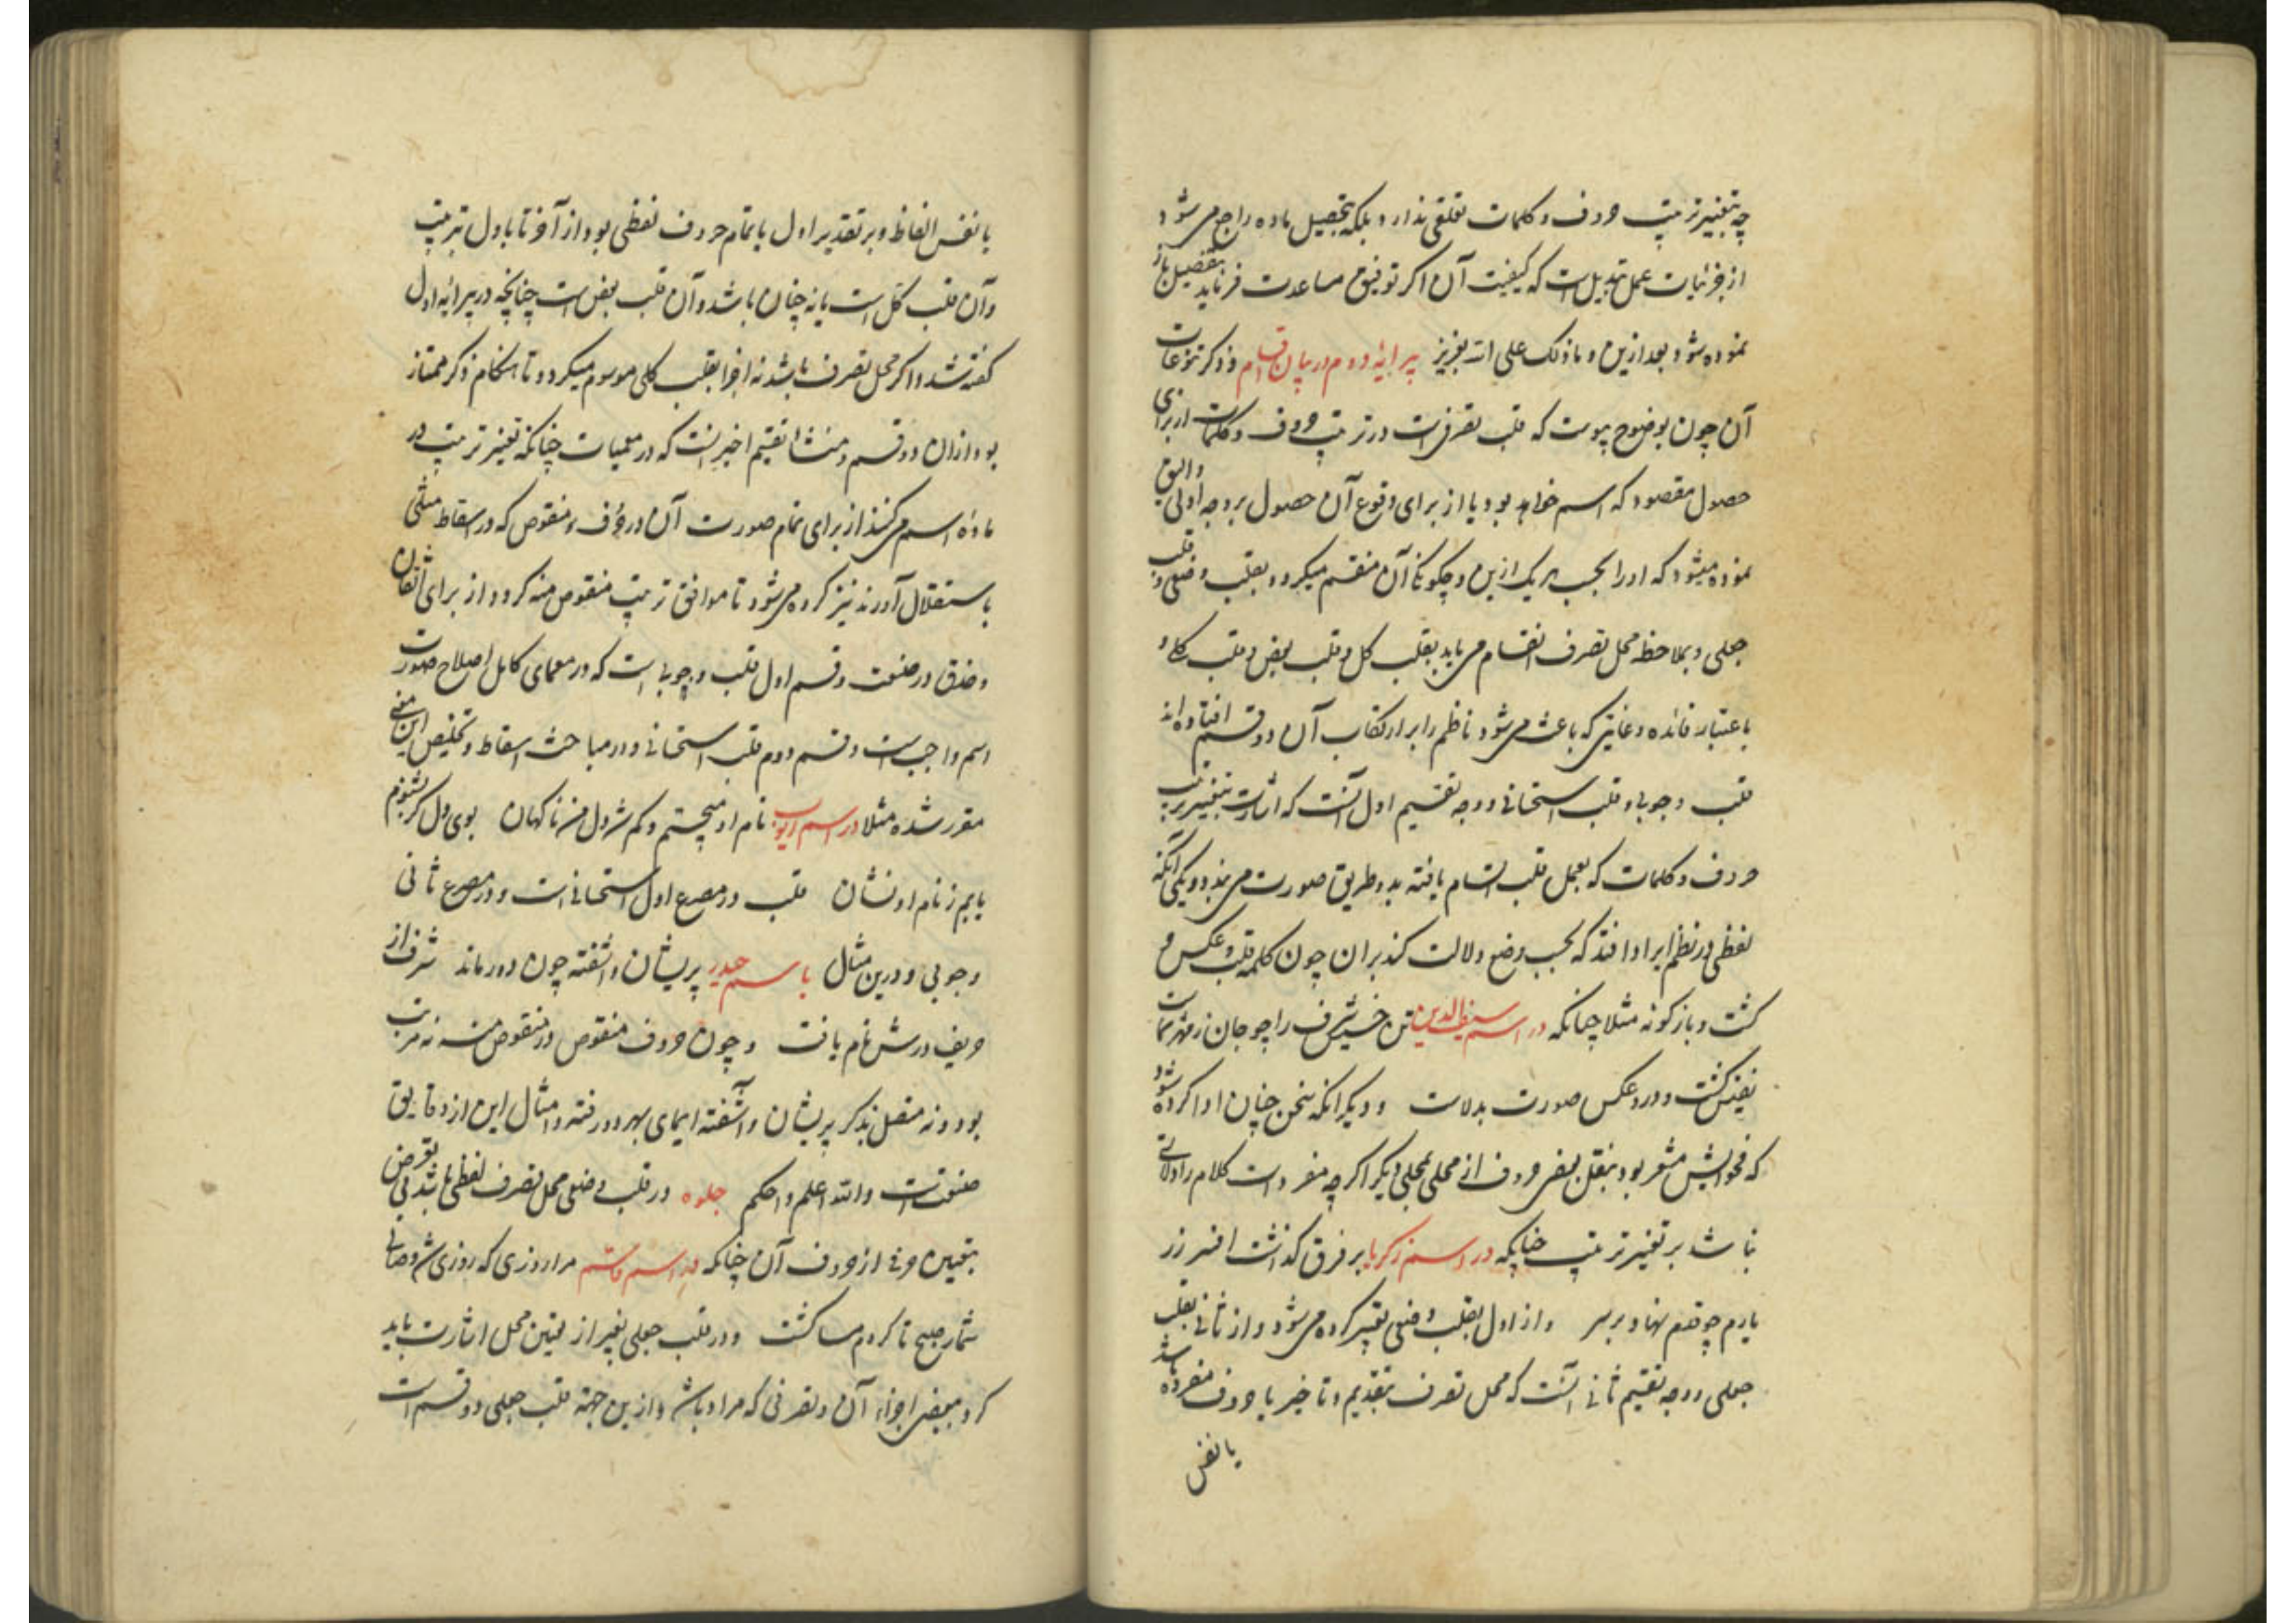 چه بتغییر ترتیب حروف و کلمات تعلقی ندارد بلکه بتحصیل ماده راجع می شود
از جزئیات عمل تبدیل است که کیفیت آن اگر توفیق مساعدت فرماید بتفصیل باز
نموده شود بعد ازین و ما ذلک علی الله بعزیز پیرایه دوم در بیان اقسام و ذکر تنوعات
آن چون بوضوح پیوست که قلب تصرفیست در ترتیب حروف و کلمات از برای
حصول مقصود که اسم خواهد بود یا از برای وقوع آن حصول بر وجه اولی و الیق
نموده میشود که او را بحسب هر یک ازین و چگونگی آن منقسم میگردد بقلب وضعی و قلب
جعلی و بملاحظه محل تصرف انقسام می یابد بقلب کل و قلب بعض و قلب کلی و
باعتبار فائده و غایتی که باعث می شود ناظم را بر ارتکاب آن دو قسم افتاده اند
قلب وجوبی و قلب استحسانی و وجه تقسیم اول آنست که اشارت بتغییر ترتیب
حروف و کلمات که بعمل قلب اتسام یافته بدو طریق صورت می بندد یکی آنکه
لفظی در نظم ایراد افتد که بحسب وضع دلالت کند بران چون کلمه قلب و عکس و
گشت و بازگونه مثلا چنانکه در اسم سیف الدین تن شرف را چو جان ز مهر
نفیس گشت و درو عکس صورت بدلاست و دیگر آنکه سخن چنان ادا کرده شود
که فحوایش مشعر بود بنقل بعضی حروف از محلی بمحلی دیگر اگر چه مفردات کلام را دلالتی
نباشد بر تغییر ترتیب چنانکه در اسم زکریا بر فرق گذاشت افسر زر
یارم چو قدم نهاد بر سر و از اول بقلب وضعی تعبیر کرده می شود و از ثانی بقلب
جعلی و وجه تقسیم ثانی آنست که محل تصرف بتقدیم و تاخیر یا حروف مفرده باشد
یا نفس
یا نفس الفاظ و بر تقدیر اول یا بتمام حروف لفظی بود از آخر تا باول بترتیب
و آن قلب کل است یا نه چنان باشد و آن قلب بعض است چنانچه در پیرایه اول
گفته شد و اگر محل تصرف باشد نه اجزا بقلب کلی موسوم میگردد تا هنگام ذکر ممتاز
بود ازان دو قسم و منشا تقسیم اخیر آنست که در معمیات چنانکه تغییر ترتیب در
ماده اسم می کنند از برای تمام صورت آن در حروف منقوص که در اسقاط مثلی
باستقلال آورند نیز کرده می شود تا موافق ترتیب منقوص منه گردد از برای اتقان
و حذق در صنعت و قسم اول قلب وجوبی است که در معمای کامل اصلاح صورت
اسم واجب است و قسم دوم قلب استحسانی و در مباحث اسقاط و تخلیص این معنی
مقرر شده مثلا در اسم ایوب نام او میجستم و گم شد دل من ناگهان بوی دل گر بشنوم
یابم ز نام او نشان قلب در مصرع اول استحسانیست و در مصرع ثانی
وجوبی و درین مثال باسم حیدر پریشان و آشفته چون دور ماند شرف از
حریف درش نام یافت و چون حروف منقوص در منقوص منه نه مرتب
بود و نه متصل بذکر پریشان و آشفته ایمای بهر دو رفته و امثال این از دقایق
صنعتست و الله اعلم و احکم جلوه در قلب وضعی محل تصرف لفظی باشد بی تعرض
بتعیین حرفی از حروف آن چنانکه در اسم قاسم مرا روزی که روزی شد وصالی
شمار صبح تا کردم مسا گشت و در قلب جعلی بغیر از تعیین محل اشارت باید
کرد ببعضی اجزاء آن و تصرفی که مراد باشد و ازین جهة قلب جعلی دو قسم است